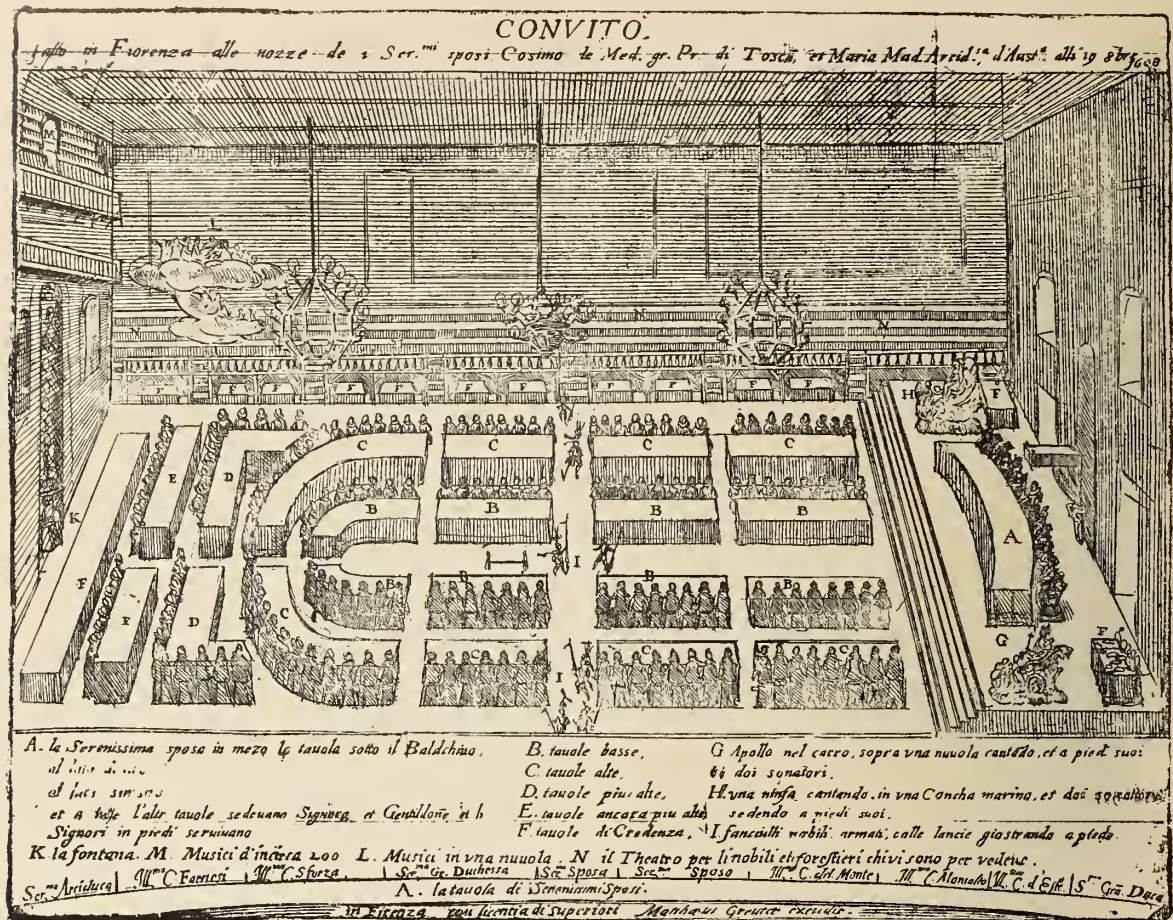 CONVITO.
fatto in Fiorenza alle nozze de i Ser.mi sposi Cosimo de Med. gr. Pr. di Tosca, et Maria Mad. Arcid.sa d'Aust.a alli 19 8bre 1608
M
N N N
F F F F F F F F F F
H F
C C C C
E D
B B B B
K
A
I
B B B
F F D C
G F
C I C C
A. la Serenissima sposa in mezo la tauola sotto il Baldchino,
al
al
et a tutte l'altr tauole sedeuano Signora et Gentildone, et li
Signori in piedi seruiuano
B. tauole basse,
C. tauole alte,
D. tauole piu alte,
E. tauole ancora piu alte
F. tauole di Credenza,
G Apollo nel carro, sopra vna nuuola cantado, et a piedi suoi
doi sonatori.
H. vna ninfa cantando, in vna Concha marina, et doi sonatori
sedendo a piedi suoi.
I. fanciulli nobili armati, colle lancie giostrando a piedo
K la fontana. M. Musici d'incirca 200 L. Musici in vna nuuola. N il Theatro per li nobili et forestieri chi vi sono per vedere.
Ser.mo Arciduca Ill.mo C. Farnesi Ill.mo C. Sforza Ser.ma Gr. Duchessa Ser.ma Sposa Ser.mo Sposo Ill.mo C. del Monte Ill.mo C. Montalto Ill.mo C. d'Este S.mo Gra. Duca
A. la tauola di Serenissimi Sposi.
in Firenza con licentia di superiori Matthaeus Greuter excudit.